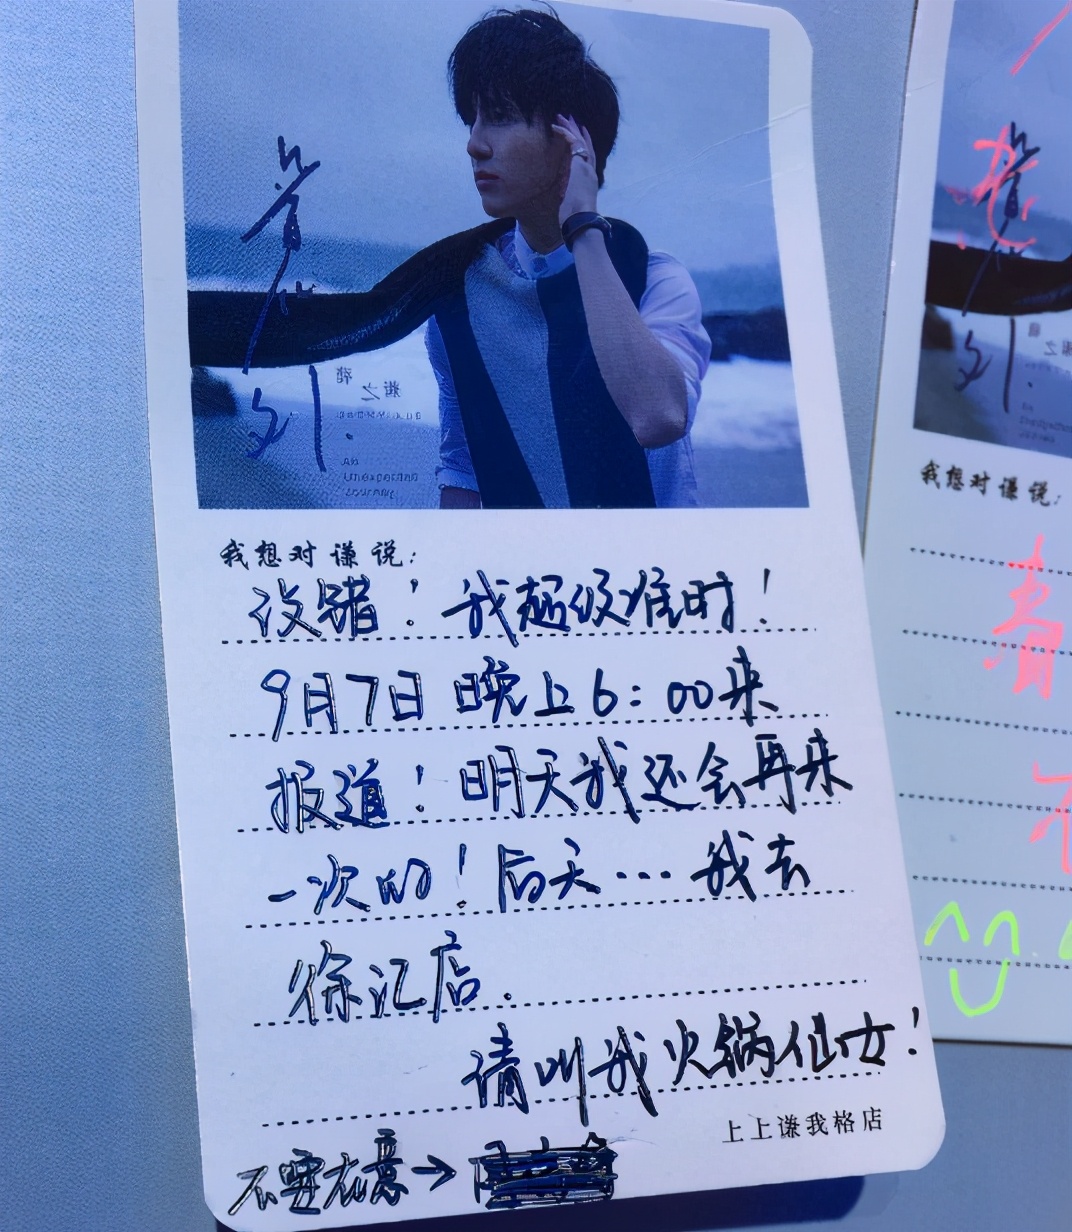 我想对谦说:
没错!我超级准时!
9月7日 晚上6:00来
报道!明天我还会再来
一次的!后天…我去
徐汇店.
请叫我火锅仙女!
上上谦我格店
不要在意→
An
Unexpected
Journey
我想对谦说: